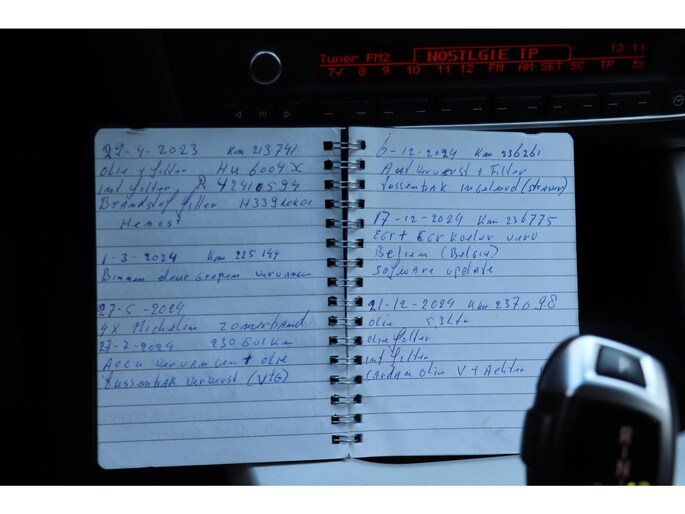 Tuner FM2
NOSTLGIE TP
13:11
7✓ 8 9 10 11 12 FM AM SET SC TP
29-4-2023 Km 213741
Olie filter HU 6004X
Lucht filter
Brandstof filter
1-3-2024 Km
Binnen deur grepen vervangen
27-5-2024
4x Michelin zomerband
27-7-2024 230601 Km
Accu vervangen + olie
Tussenbak ververst (VTG)
-12-2024 Km 236261
Aut ververst + Filter
Tussenbak ingeleerd
17-12-2024 Km 236775
EGR + EGR Koeler verv
(Belgie)
Software update
21-12-2024 Km 237098
Olie 5.3 ltr
Olie filter
Lucht filter
Cardan olie V + Achter
R
N